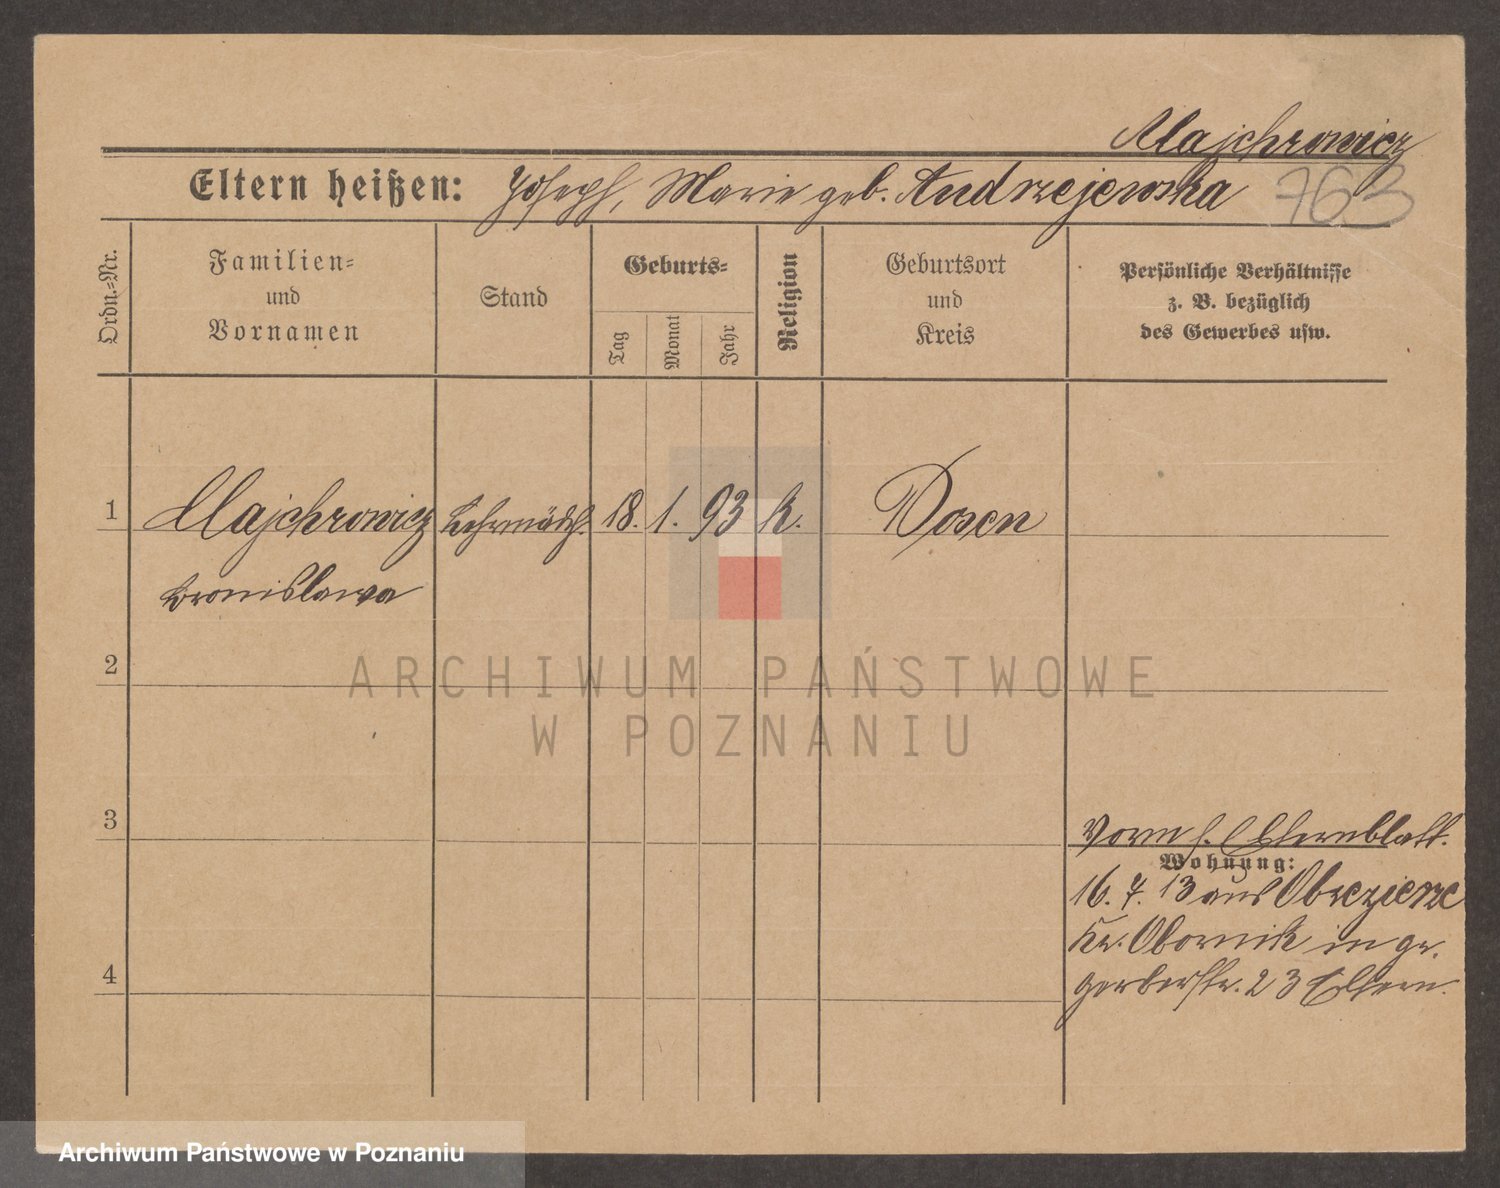 Majchrowicz
Eltern heißen: Joseph, Marie geb. Andrzejewska 763
Ordn.=Nr.
Familien=
und
Vornamen
Stand
Geburts=
Tag
Monat
Jahr
Religion
Geburtsort
und
Kreis
Persönliche Verhältnisse
z. B. bezüglich
des Gewerbes usw.
1 Majchrowicz Lehrmädch. 18. 1. 93 k. Posen
Bronislawa
2
3
Vorm s. Elternblatt.
Wohnung:
16. 4. 13 aus Obrzezierze
Kr. Obornik in gr.
gerberstr. 23 Eltern.
4
ARCHIWUM PAŃSTWOWE
W POZNANIU
Archiwum Państwowe w Poznaniu